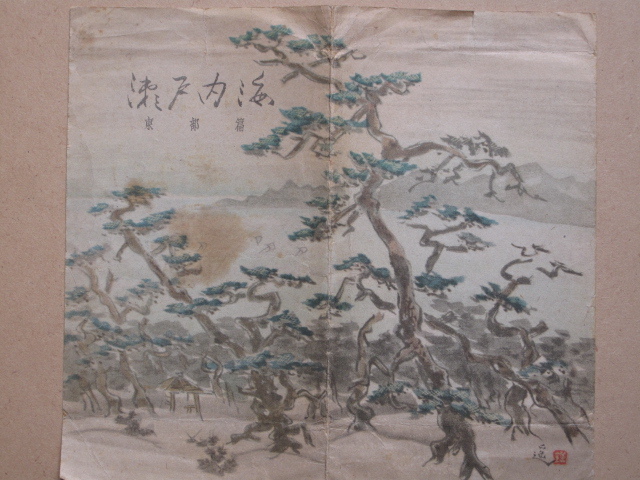 瀬戸内海
東部篇